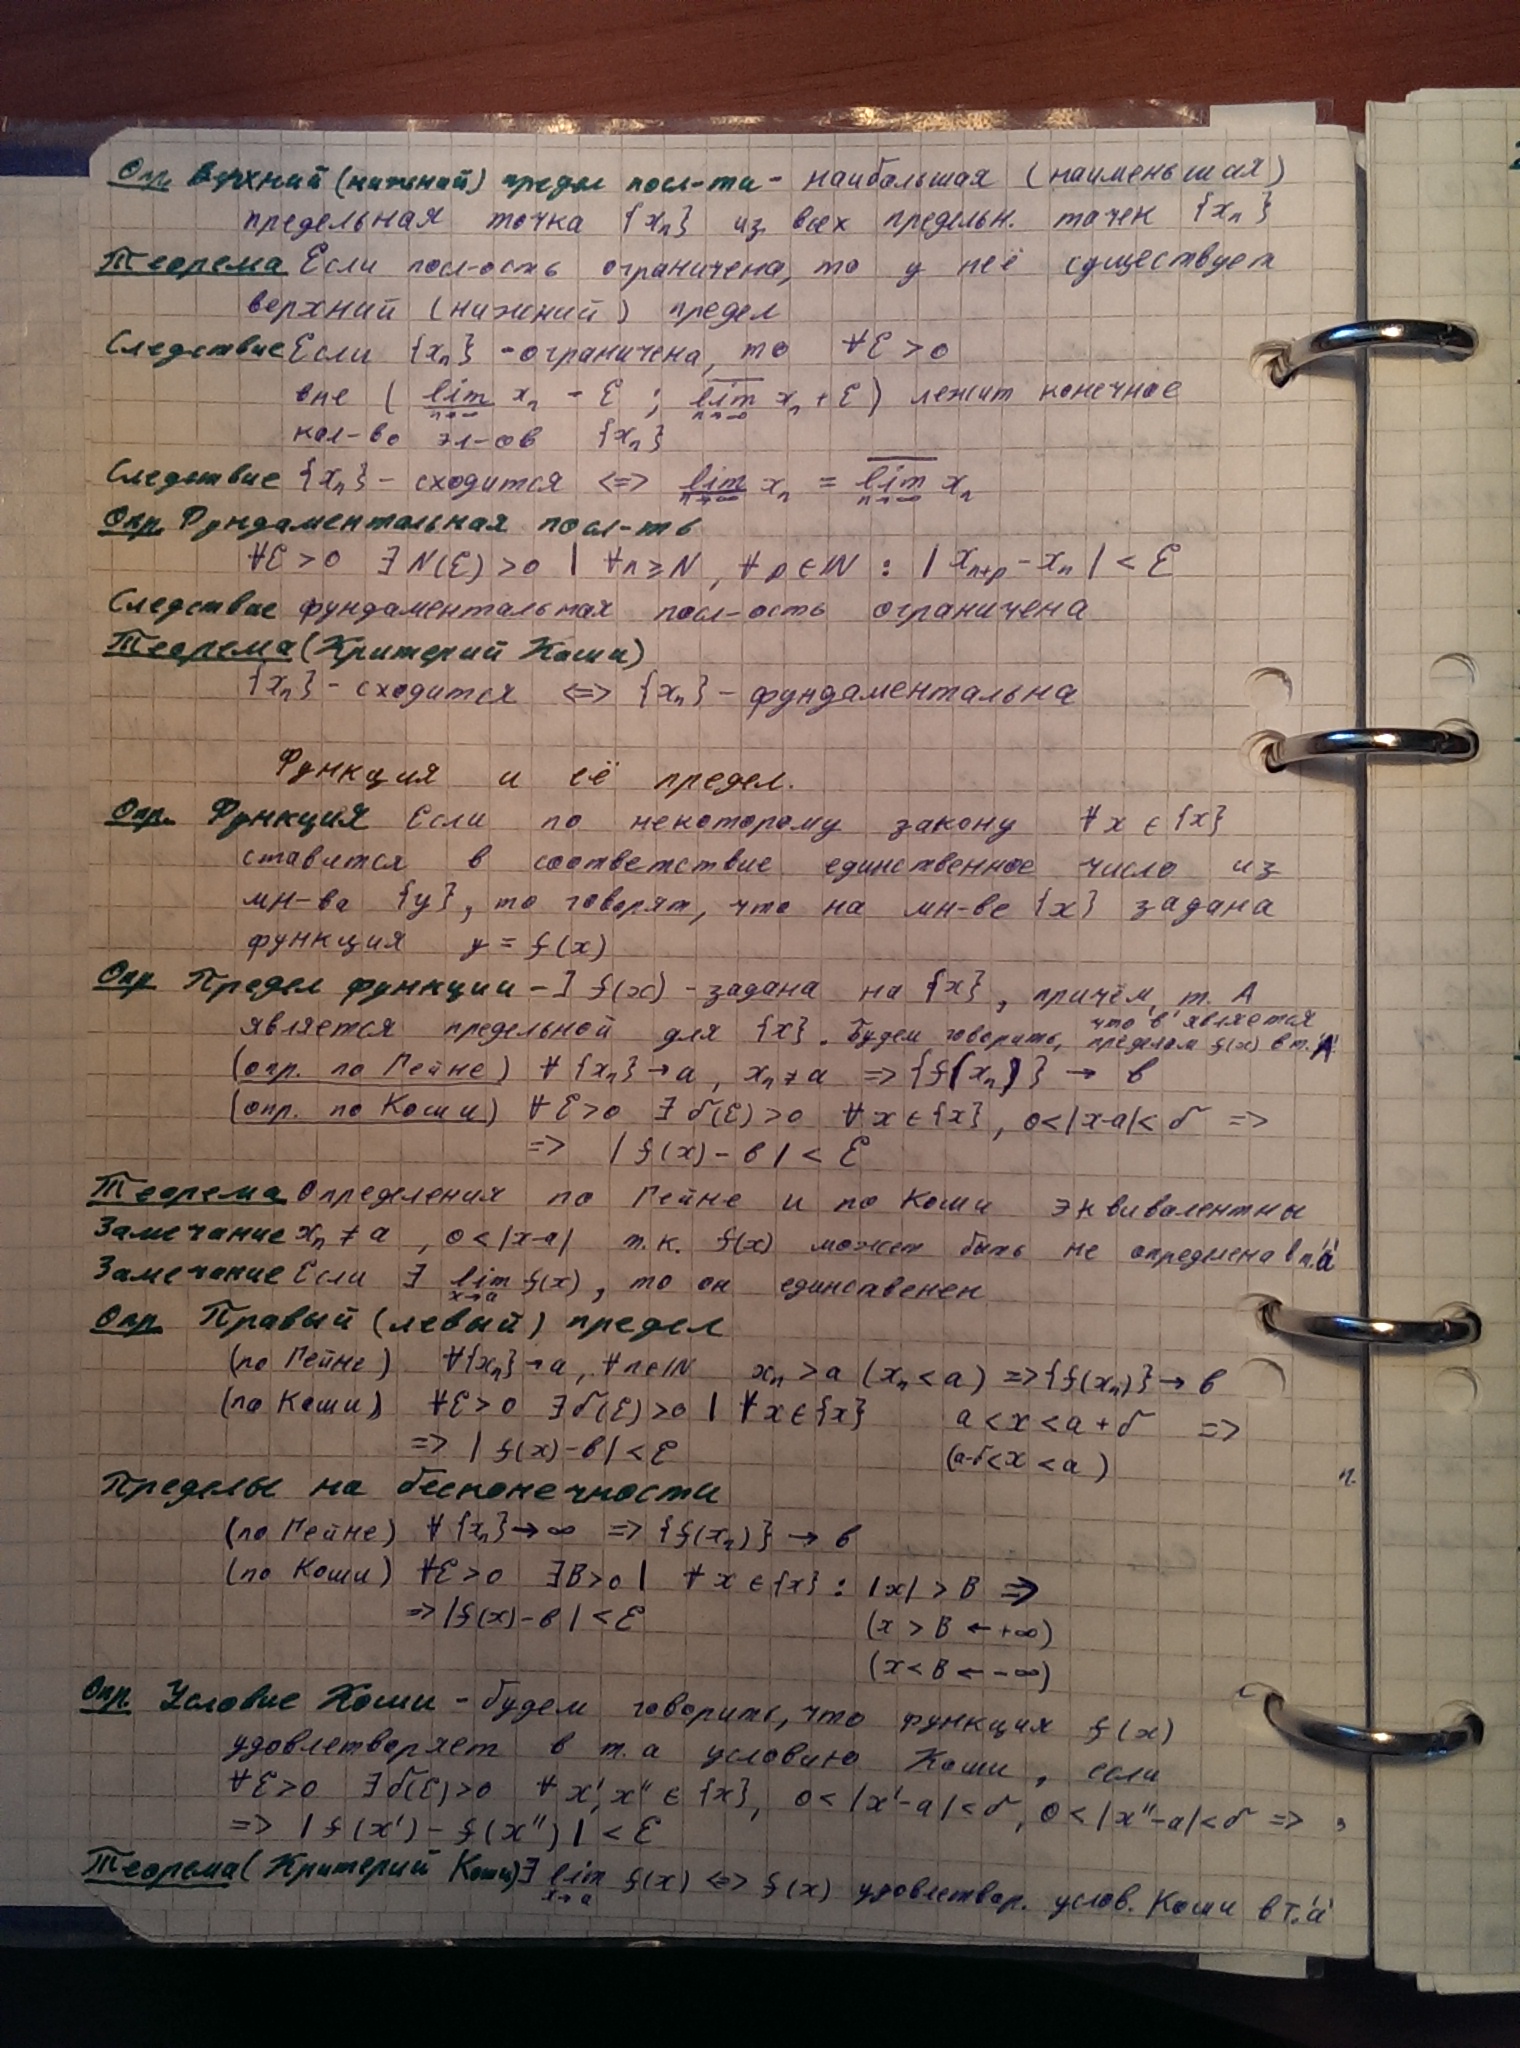 Опр. Верхний (нижний) предел посл-ти - наибольшая (наименьшая)
предельная точка {xₙ} из всех предельн. точек {xₙ}
Теорема Если посл-ость ограничена, то у неё существует
верхний (нижний) предел
Следствие Если {xₙ} - ограничена, то ∀ε > 0
вне ( lim xₙ - ε ; lim xₙ + ε ) лежит конечное
n→∞ n→∞
кол-во эл-ов {xₙ}
Следствие {xₙ} - сходится <=> lim xₙ = lim xₙ
n→∞ n→∞
Опр. Фундаментальная посл-ть
∀ε > 0 ∃ N(ε) > 0 | ∀n ≥ N, ∀p ∈ ℕ : | xₙ₊ₚ - xₙ | < ε
Следствие фундаментальная посл-ость ограничена
Теорема (Критерий Коши)
{xₙ} - сходится <=> {xₙ} - фундаментальна
Функция и её предел.
Опр. Функция Если по некоторому закону ∀ x ∈ {x}
ставится в соответствие единственное число из
мн-ва {y}, то говорят, что на мн-ве {x} задана
функция y = f(x)
Опр Предел функции - ] f(x) - задана на {x}, причём, т. A
является предельной для {x}. Будем говорить, что 'в' является пределом f(x) в т. 'A'
(опр. по Гейне) ∀ {xₙ} → a, xₙ ≠ a => {f(xₙ)} → в
(опр. по Коши) ∀ ε > 0 ∃ δ(ε) > 0 ∀ x ∈ {x}, 0 < |x-a| < δ =>
=> | f(x) - в | < ε
Теорема Определения по Гейне и по Коши эквивалентны
Замечание xₙ ≠ a, 0 < |x-a| т.к. f(x) может быть не определена в т. 'a'
Замечание Если ∃ lim f(x), то он единсавенен
x→a
Опр Правый (левый) предел
(по Гейне) ∀{xₙ} → a, ∀n∈ℕ xₙ > a (xₙ < a) => {f(xₙ)} → в
(по Коши) ∀ε > 0 ∃ δ(ε) > 0 | ∀ x ∈ {x} a < x < a + δ =>
=> | f(x) - в | < ε (a-δ < x < a)
Пределы на бесконечности
(по Гейне) ∀ {xₙ} → ∞ => {f(xₙ)} → в
(по Коши) ∀ε > 0 ∃B > 0 | ∀ x ∈ {x} : |x| > B =>
=> |f(x) - в | < ε (x > B ← +∞)
(x < B ← -∞)
Опр. Условие Коши - будем говорить, что функция f(x)
удовлетворяет в т. a условию Коши, если
∀ε > 0 ∃ δ(ε) > 0 ∀ x', x'' ∈ {x}, 0 < |x' - a| < δ, 0 < |x'' - a| < δ =>
=> | f(x') - f(x'') | < ε
Теорема (Критерий Коши) ∃ lim f(x) <=> f(x) удовлетвор. услов. Коши в т. 'a'
x→a